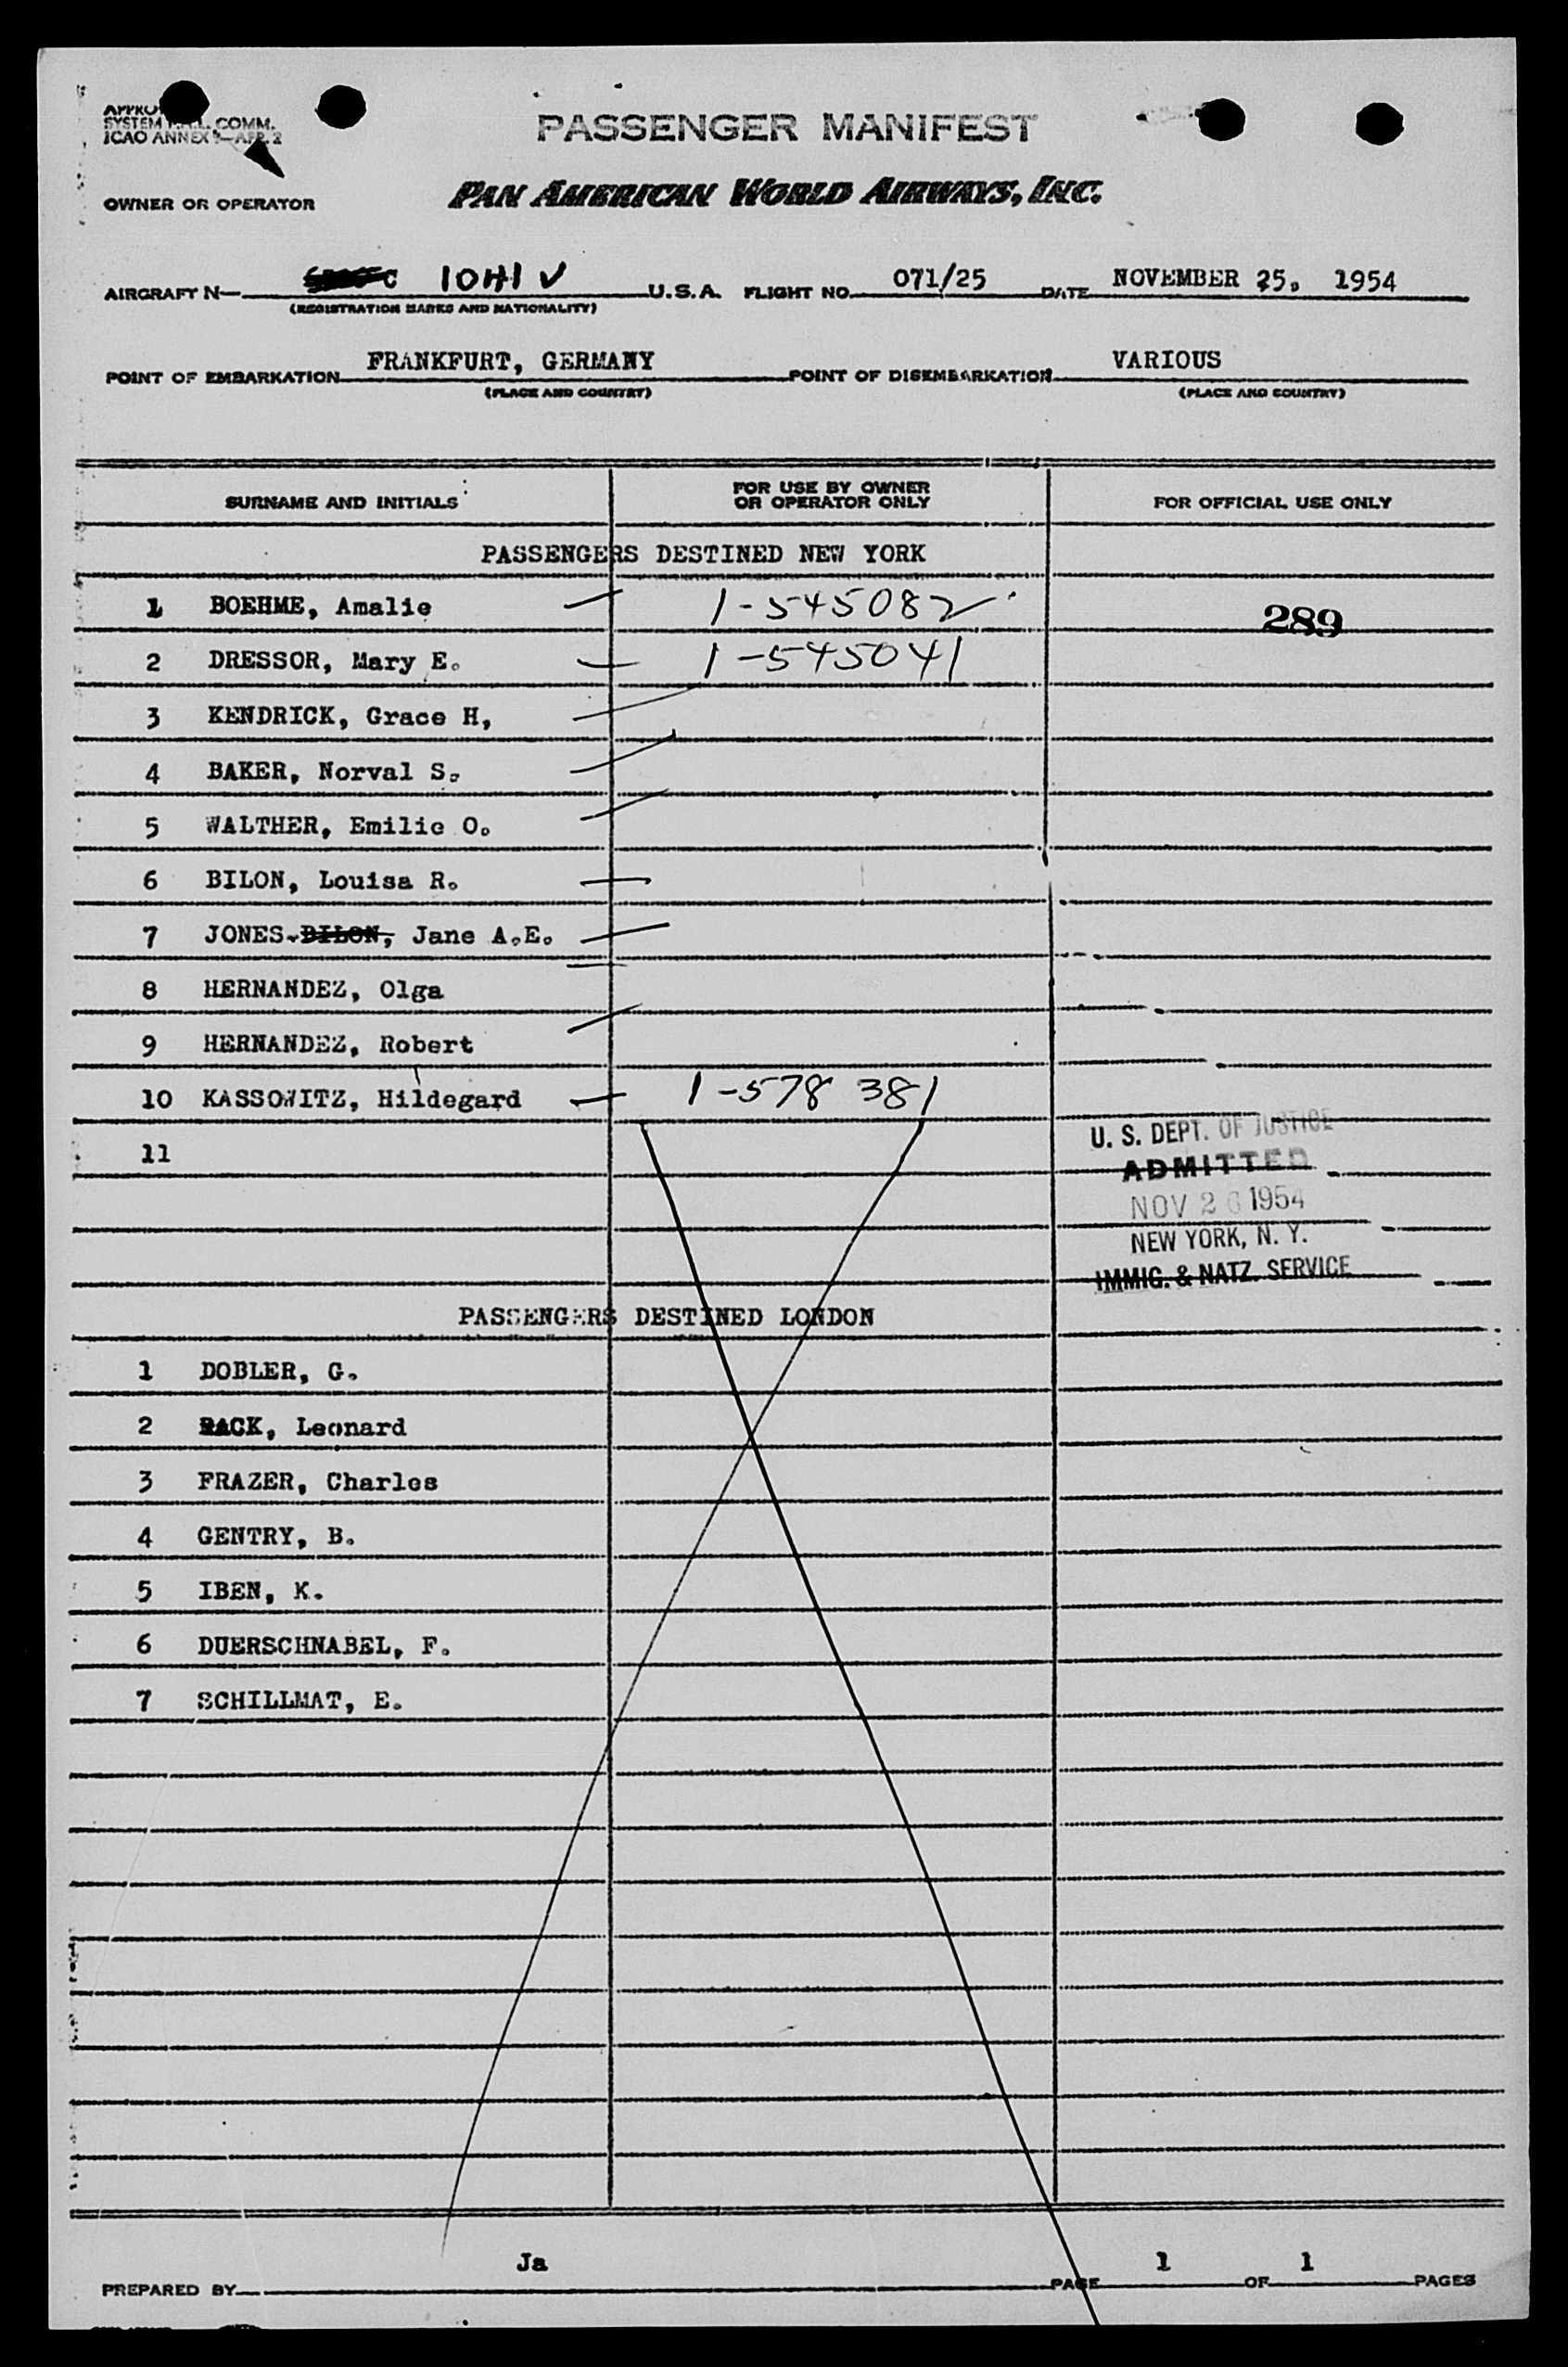 SYSTEM COMM.
ICAO ANNEX
PASSENGER MANIFEST
OWNER OR OPERATOR PAN AMERICAN WORLD AIRWAYS, INC.
AIRCRAFT N— C 1041 ✓ U.S.A. FLIGHT NO. 071/25 DATE NOVEMBER 25, 1954
(REGISTRATION MARKS AND NATIONALITY)
POINT OF EMBARKATION FRANKFURT, GERMANY POINT OF DISEMBARKATION VARIOUS
(PLACE AND COUNTRY) (PLACE AND COUNTRY)
SURNAME AND INITIALS FOR USE BY OWNER OR OPERATOR ONLY FOR OFFICIAL USE ONLY
PASSENGERS DESTINED NEW YORK
1 BOEHME, Amalie 1-545082 289
2 DRESSOR, Mary E. 1-545041
3 KENDRICK, Grace H,
4 BAKER, Norval S.
5 WALTHER, Emilie O.
6 BILON, Louisa R.
7 JONES-BILON, Jane A.E.
8 HERNANDEZ, Olga
9 HERNANDEZ, Robert
10 KASSOWITZ, Hildegard 1-578 381
11
U. S. DEPT. OF JUSTICE
ADMITTED
NOV 26 1954
NEW YORK, N. Y.
IMMIG. & NATZ. SERVICE
PASSENGERS DESTINED LONDON
1 DOBLER, G.
2 Leonard
3 FRAZER, Charles
4 GENTRY, B.
5 IBEN, K.
6 DUERSCHNABEL, F.
7 SCHILLMAT, E.
PREPARED BY Ja PAGE 1 OF 1 PAGES